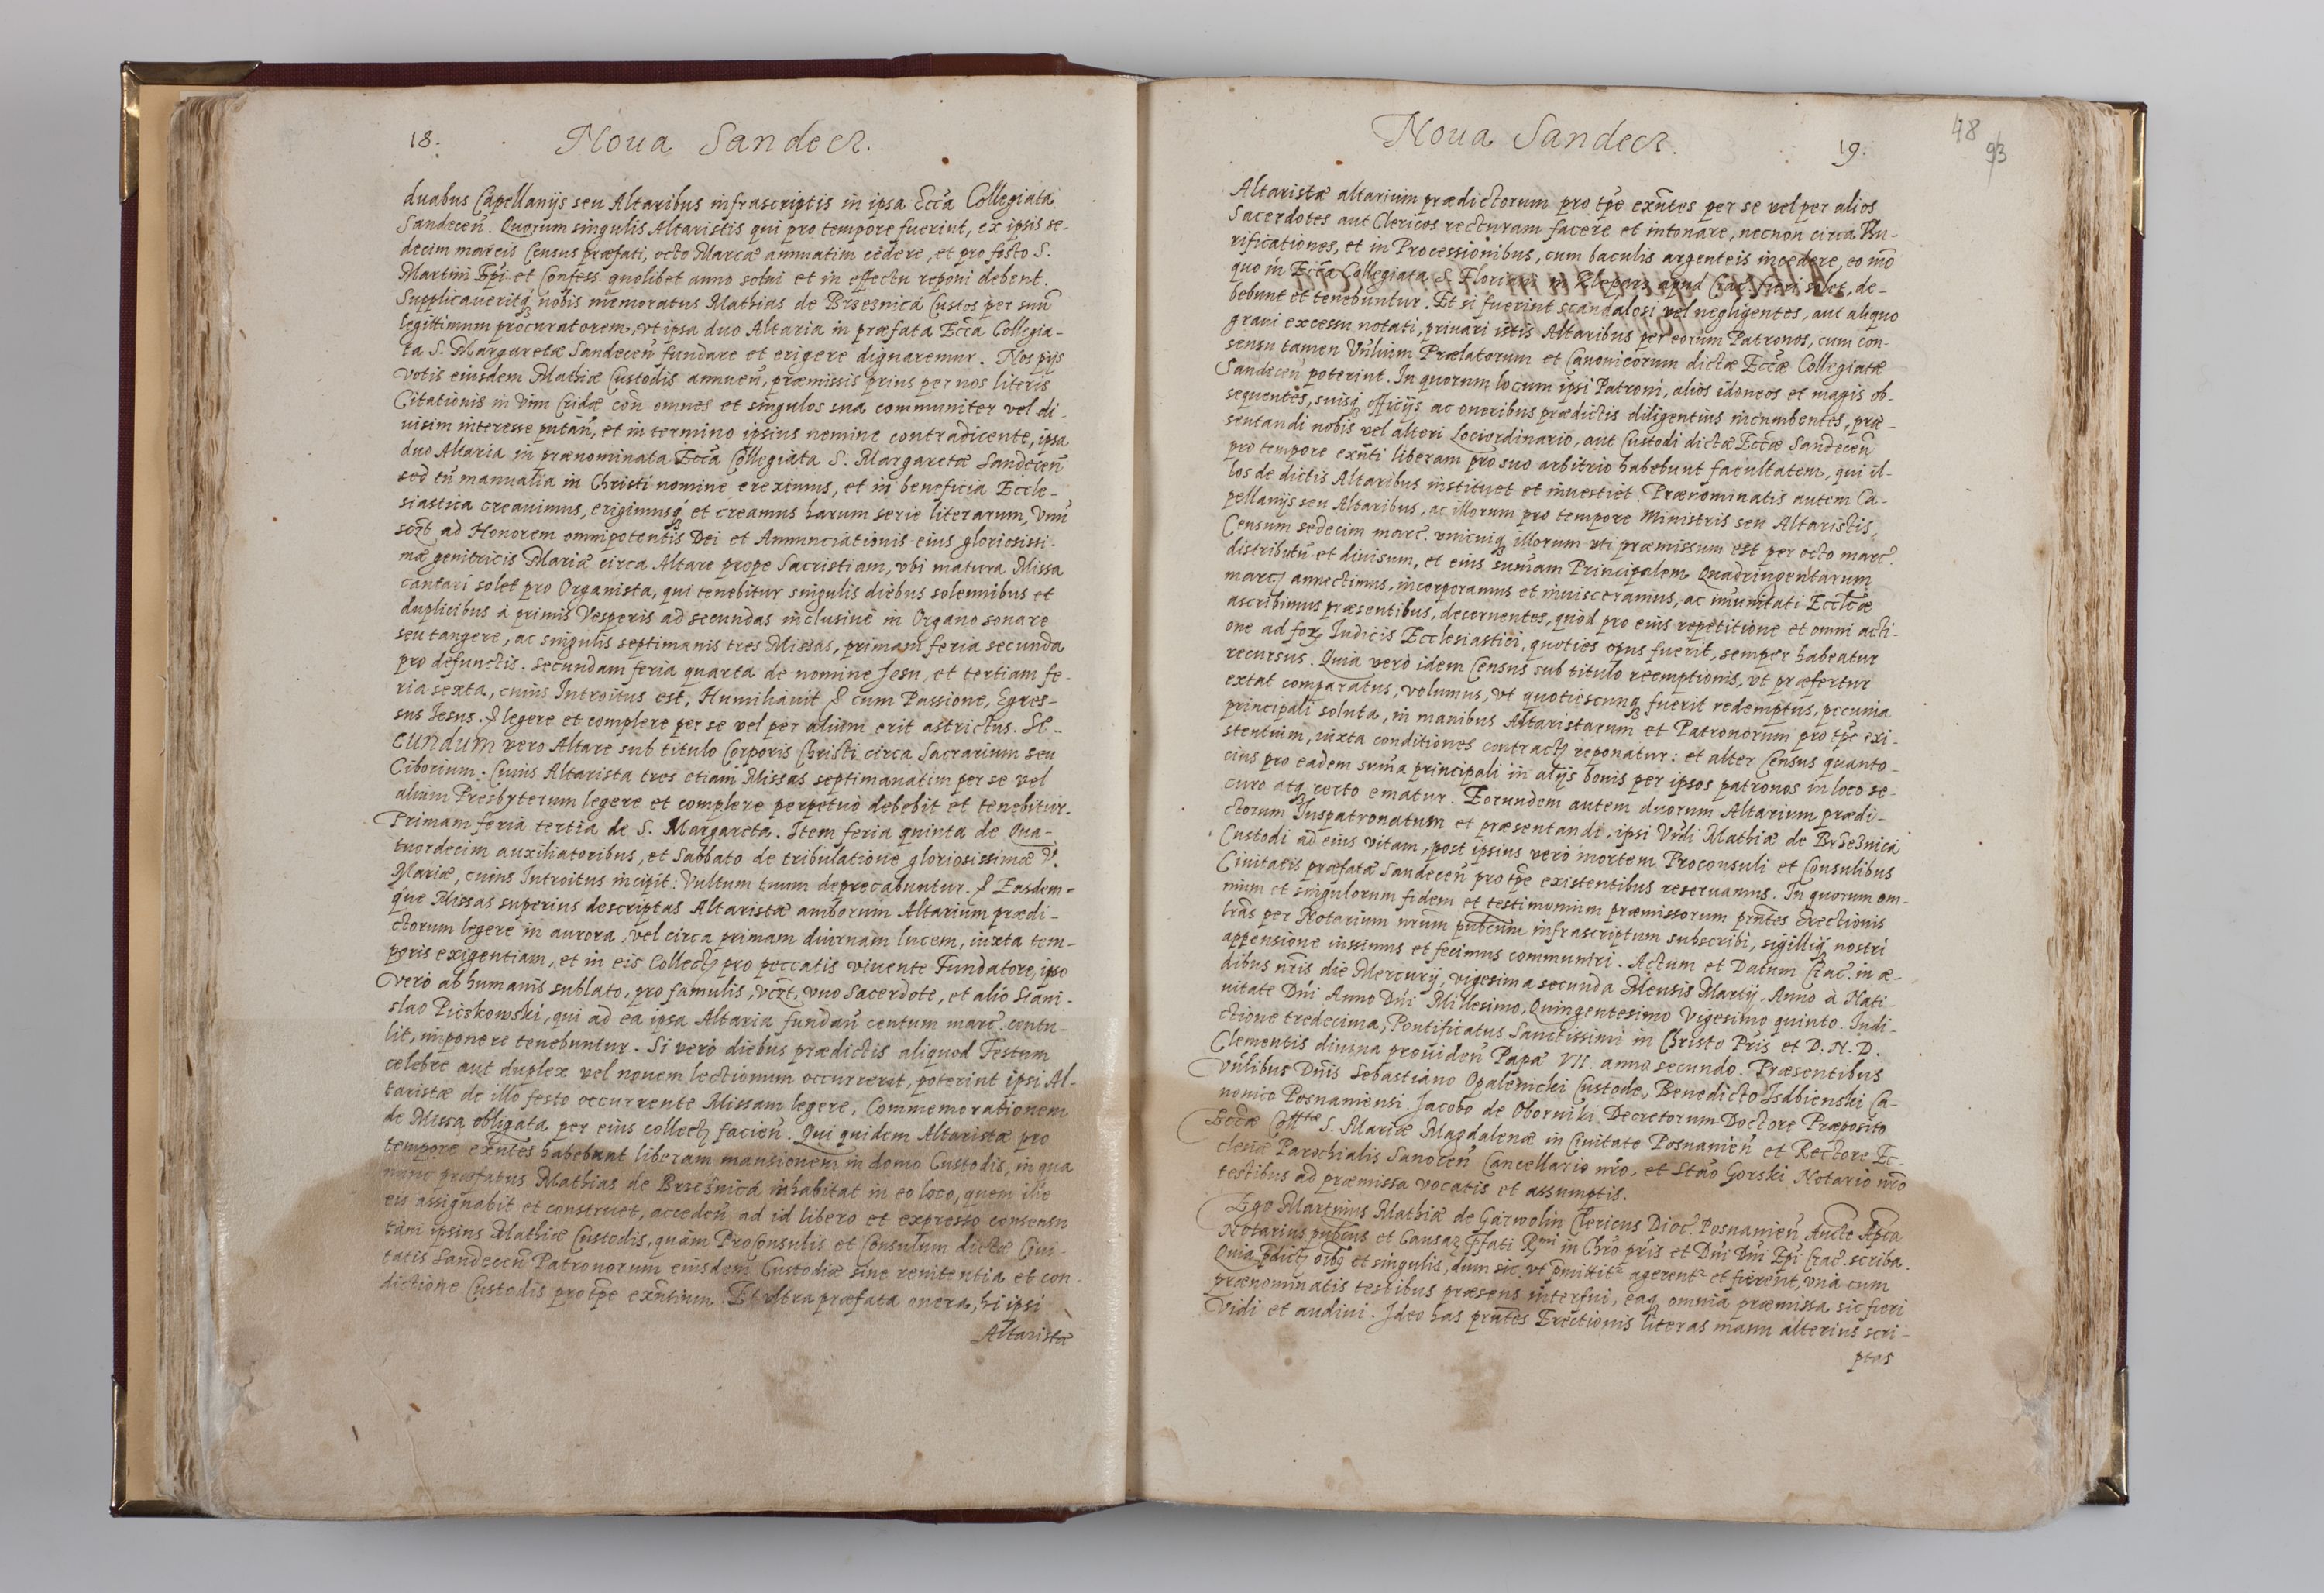 18.
Noua Sandecz.
duabus Capellanijs seu Altaribus infrascriptis in ipsa Eccã Collegiata
Sandeceñ. Quorum singulis Altaristis qui pro tempore fuerint, ex ipsis se-
decim marcis Census præfati, octo Marcæ annuatim cedere, et pro festo S.
Martini Epi et Confess. quolibet anno solui et in effectu reponi debent.
Supplicaueritq nobis memoratus Mathias de Brzeznica Custos per suũ
legittimum procuratorem, vt ipsa duo Altaria in præfata Eccã Collegia-
ta S. Margaretæ Sandeceñ fundare et erigere dignaremur. Nos pijs
votis eiusdem Mathiæ Custodis annueñ, præmissis prius per nos literis
Citationis in vim Cridæ coñ omnes et singulos sua communiter vel di-
uisim interesse putañ, et in termino ipsius nemine contradicente, ipsa
duo Altaria in prænominata Eccã Collegiata S. Margaretæ Sandeceñ
sed tñ manualia in Christi nomine ereximus, et in beneficia Eccle-
siastica creauimus, erigimusq et creamus harum serie literarum, Vnũ
sczt ad Honorem omnipotentis Dei et Annunciationis eius gloriosissi-
mæ genitricis Mariæ circa Altare prope Sacristiam, vbi matura Missa
cantari solet pro Organista, qui tenebitur singulis diebus solennibus et
duplicibus à primis Vesperis ad secundas inclusiuè in Organo sonare
seu tangere, ac singulis septimanis tres Missas, primam feria secunda
pro defunctis. secundam feria quarta de nomine Jesu, et tertiam fe-
ria sexta, cuius Introitus est, Humiliauit & cum Passione, Egres-
sus Iesus. & legere et complere per se vel per alium erit astrictus. Se-
cundum vero Altare sub titulo Corporis Christi circa Sacrarium seu
Ciborium. Cuius Altarista tres etiam Missas septimanatim per se vel
alium Presbyterum legere et complere perpetuò debebit et tenebitur.
Primam feria tertia de S. Margareta. Item feria quinta de Qua-
tuordecim auxiliatoribus, et Sabbato de tribulatione gloriosissimæ V.
Mariæ, cuius Introitus incipit: Vultum tuum deprecabuntur. & Easdem-
que Missas superius descriptas Altaristæ amborum Altarium prædi-
ctorum legere in aurora, vel circa primam diurnam lucem, iuxta tem-
poris exigentiam, et in eis Collectz pro peccatis viuente Fundatore, ipso
verò ab humanis sublato, pro famulis, vczt, vno Sacerdote, et alio Stani-
slao Piczkowski, qui ad ea ipsa Altaria fundañ centum marc. contu-
lit, imponere tenebuntur. Si verò diebus prædictis aliquod Festum
celebre aut duplex vel nouem lectionum occurrerit, poterint ipsi Al-
taristæ de illo festo occurrente Missam legere, Commemorationem
de Missa obligata per eius collectz facieñ. Qui quidem Altaristæ pro
tempore exñtes habebunt liberam mansionem in domo Custodis, in qua
nunc præfatus Mathias de Brzeznica inhabitat in eo loco, quem ille
eis assignabit et construet, accedeñ ad id libero et expresso consensu
tàm ipsius Mathiæ Custodis, quàm ProConsulis et Consulum dictæ Ciui-
tatis Sandeceñ Patronorum eiusdem Custodiæ sine renitentia et con-
dictione Custodis pro tpe exñtium. Et vltra præfata onera, hi ipsi
Altaristæ
Noua Sandecz.
19.
48
93
Altaristæ altarium prædictorum pro tpe exñtes per se vel per alios
Sacerdotes aut Clericos recturam facere et intonare, necnon circa Thu-
rificationes, et in Processionibus, cum baculis argenteis incedere, eo mõ
quo in Eccã Collegiata S. Floriani in Kleparz apud Crac. fieri solet, de-
bebunt et tenebuntur. Et si fuerint scandalosi vel negligentes, aut aliquo
graui excessu notati, priuari istis Altaribus per eorum Patronos, cum con-
sensu tamen Vnliuim Prælatorum et Canonicorum dictæ Eccæ Collegiatæ
Sandeceñ poterint. In quorum locum ipsi Patroni, alios idoneos et magis ob-
sequentes, suisq officijs ac oneribus prædictis diligentius incumbentes, præ-
sentandi nobis vel alteri Lociordinario, aut Custodi dictæ Eccæ Sandeceñ
pro tempore exñti liberam pro suo arbitrio habebunt facultatem, qui il-
los de dictis Altaribus instituet et inuestiet. Prænominatis autem Ca-
pellanijs seu Altaribus, ac illorum pro tempore Ministris seu Altaristis,
Censum sedecim marc. vnicuiq illorum vti præmissum est per octo marc.
distributũ et diuisum, et eius sumam Principalem Quadringentarum
marcz annectimus, incorporamus et inuisceramus, ac imunitati Eccliæ
ascribimus præsentibus, decernentes, quòd pro eius repetitione et omni acti-
one ad forz Iudicis Ecclesiastici, quoties opus fuerit, semper habeatur
recursus. Quia verò idem Census sub titulo reemptionis, vt præfertur
extat comparatus, volumus, vt quotiescunq fuerit redemptus, pecunia
principali soluta, in manibus Altaristarum et Patronorum pro tpe exi-
stentium, iuxta conditiones contractz reponatur: et alter Census quanto-
cius pro eadem suma principali in alijs bonis per ipsos patronos in loco se-
curo atq certo ematur. Eorundem autem duorum Altarium prædi-
ctorum Iuspatronatum et præsentandi, ipsi Vnli Mathiæ de Brzeznica
Custodi ad eius vitam, post ipsius verò mortem Proconsuli et Consulibus
Ciuitatis præfatæ Sandeceñ pro tpe existentibus reseruamus. In quorum om-
nium et singulorum fidem et testimonium præmissorum pñtes Erectionis
lras per Notarium nrum pubcum infrascriptum subscribi, sigilliq nostri
appensione iussimus et fecimus communiri. Actum et Datum Crac. in æ-
dibus nris die Mercurij, vigesima secunda Mensis Martij. Anno à Nati-
uitate Dñi Anno Dñi Millesimo, Quingentesimo Vigesimo quinto. Indi-
ctione tredecima, Pontificatus Sanctissimi in Christo Pris et D. N. D.
Clementis diuina prouideñ Papæ VII. anno secundo. Præsentibus
Vnlibus Dñis Sebastiano Opalenicki Custode, Benedicto Isdbienski Ca-
nonico Posnaniensi Jacobo de Oborniki Decretorum Doctore Præposito
Eccæ Collttæ S. Mariæ Magdalenæ in Ciuitate Posnanieñ et Rectore Ec-
cleuæ Parochialis Sanoceñ Cancellario nro, et Stão Gorski Notario nrõ
testibus ad præmissa vocatis et assumptis.
Ego Martinus Mathiæ de Garwolin Clericus Dioc. Posnanieñ Aucte Apca
Notarius pubcus et Causaz pfati Rmi in Chro pris et Dñi Dñi Epi Crac. scriba.
Quia pdictz oibz et singulis, dum sic vt pmittitr agerentr et fierent, vnà cum
prænominatis testibus præsens interfui, eaq omnia præmissa sic fieri
Vidi et audiui. Ideo has pñtes Erectionis literas manu alterius scri-
ptas